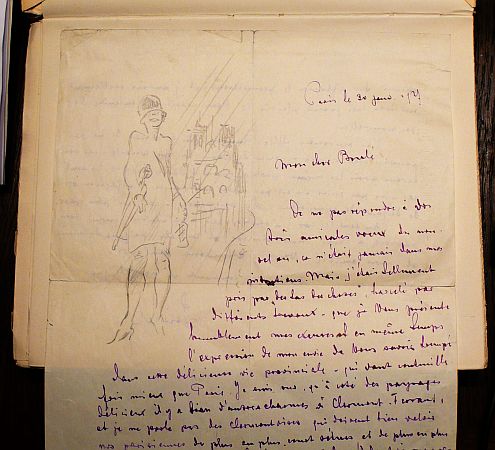 Paris le 30 janv. 1929
Mon cher
De ne pas répondre à vos
très amicales voeux du nou-
vel an, ce n'était jamais dans mes
intentions. Mais j'étais tellement
pris par "des tas de choses", harcelé par
différents travaux que je vous présente
humblement mes excuses et en même temps
l'expression de mon envie de vous savoir
dans cette délicieuse vie provinciale - qui vaut
fois mieux que Paris. Je suis sûr, qu'à côté des paysages
délicieux il y a bien d'autres charmes à Clermont-Ferrand,
et je ne parle pas des Clermontoises qui doivent bien
nos parisiennes de plus en plus et de plus en plus